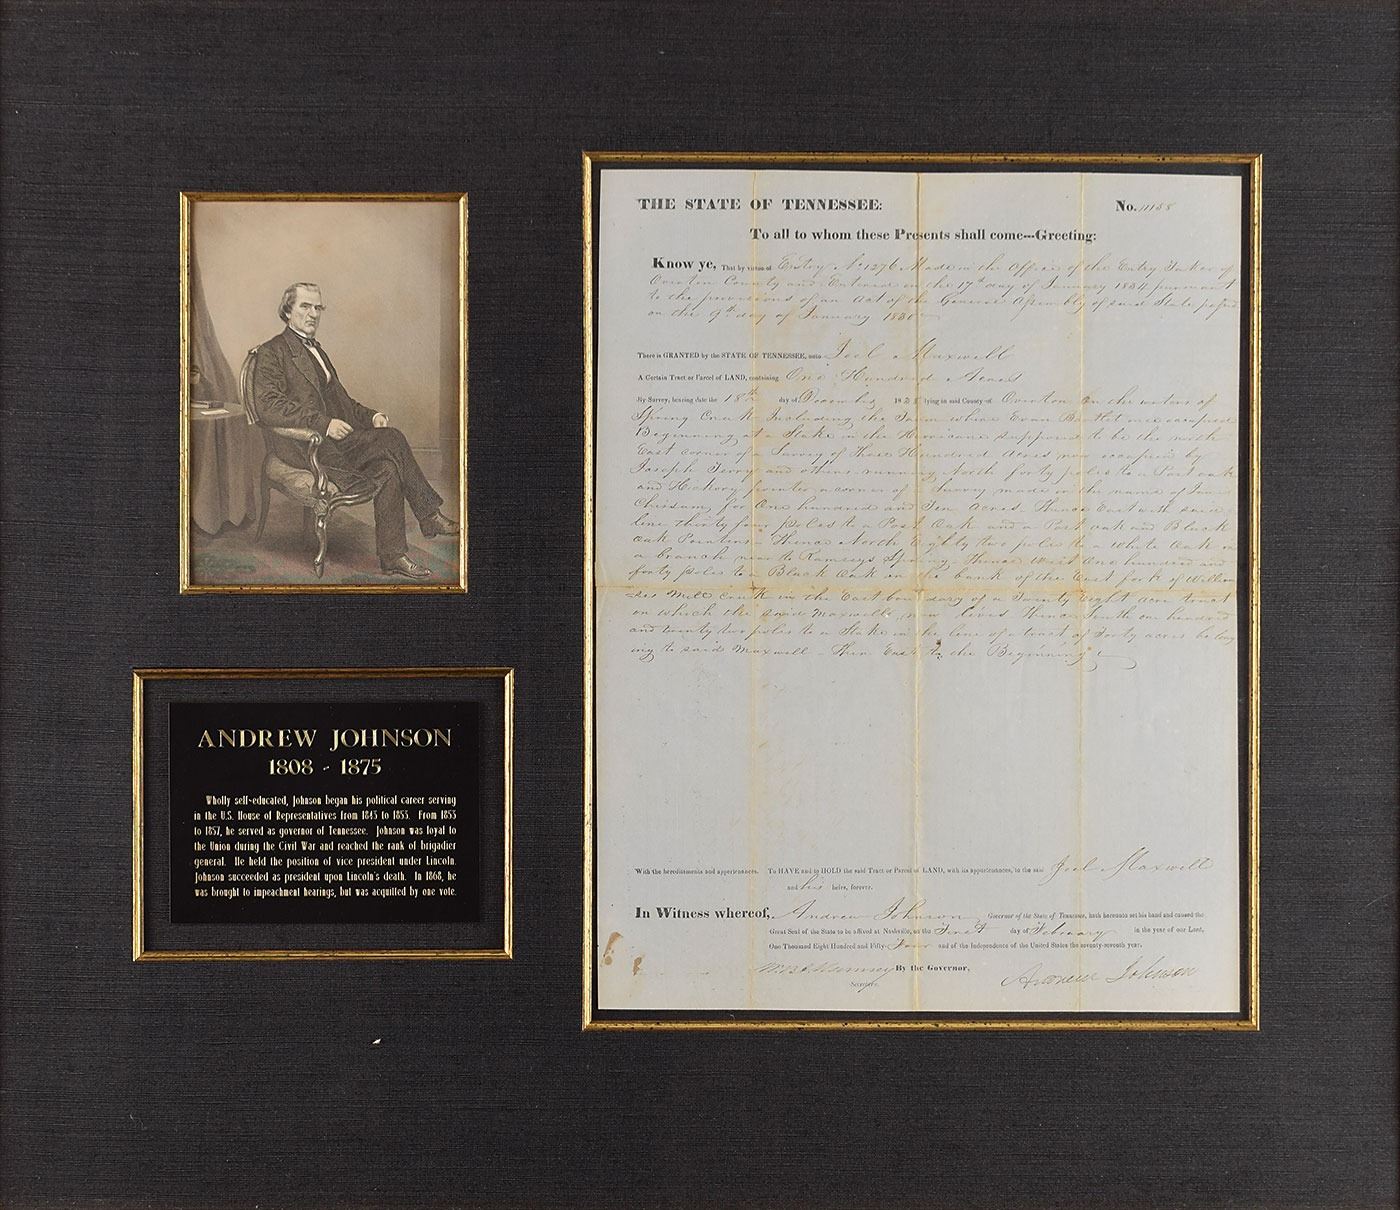 ANDREW JOHNSON
1808 - 1875
Wholly self-educated, Johnson began his political career serving
in the U.S. House of Representatives from 1843 to 1853. From 1853
to 1857, he served as governor of Tennessee. Johnson was loyal to
the Union during the Civil War and reached the rank of brigadier
general. He held the position of vice president under Lincoln.
Johnson succeeded as president upon Lincoln's death. In 1868, he
was brought to impeachment hearings, but was acquitted by one vote.
THE STATE OF TENNESSEE: No. 11188
To all to whom these Presents shall come---Greeting:
Know ye, That by virtue of Entry No 1276 Made in the Office of the Entry Taker of
Overton County and Entered on the 17th day of January 1834 pursuant
to the provisions of an Act of the General Assembly of said State passed
on the 9th day of January 1830
There is GRANTED by the STATE OF TENNESSEE, unto Joel Maxwell
A Certain Tract or Parcel of LAND, containing One Hundred Acres
By Survey, bearing date the 18th day of December lying in said County of Overton On the waters of
Spring Creek Including the Farm where Evan Bartlet once occupied
Beginning at a Stake in the Hurricane supposed to be the north
East corner of a Survey of Three Hundred Acres now occupied by
Joseph Terry and others running North forty poles to a Post oak
and Hickory pointer a corner of a Survey made in the name of
Chisum for One hundred and Ten Acres. Thence East with said
line thirty four poles to a Post Oak and a Post oak and Black
oak Pointers Thence North Eighty two poles to a White Oak on
a branch near to Ramseys Spring. Thence West One hundred and
forty poles to a Black Oak on the bank of the East fork of
Mill creek in the East boundary of a Twenty Eight acre tract
on which the said Maxwell now lives Thence South one hundred
and twenty two poles to a Stake in the line of a tract of Forty acres belong
ing to said Maxwell - Then East to the Beginning
With the hereditaments and appertenances. To HAVE and to HOLD the said Tract or Parcel of LAND, with its appertenances, to the said Joel Maxwell
and his heirs, forever.
In Witness whereof, Andrew Johnson Governor of the State of Tennessee, hath hereunto set his hand and caused the
Great Seal of the State to be affixed at Nashville, on the First day of February in the year of our Lord,
One Thousand Eight Hundred and Fifty-Four and of the Independence of the United States the seventy-seventh year.
By the Governor, Andrew Johnson
Secretary.